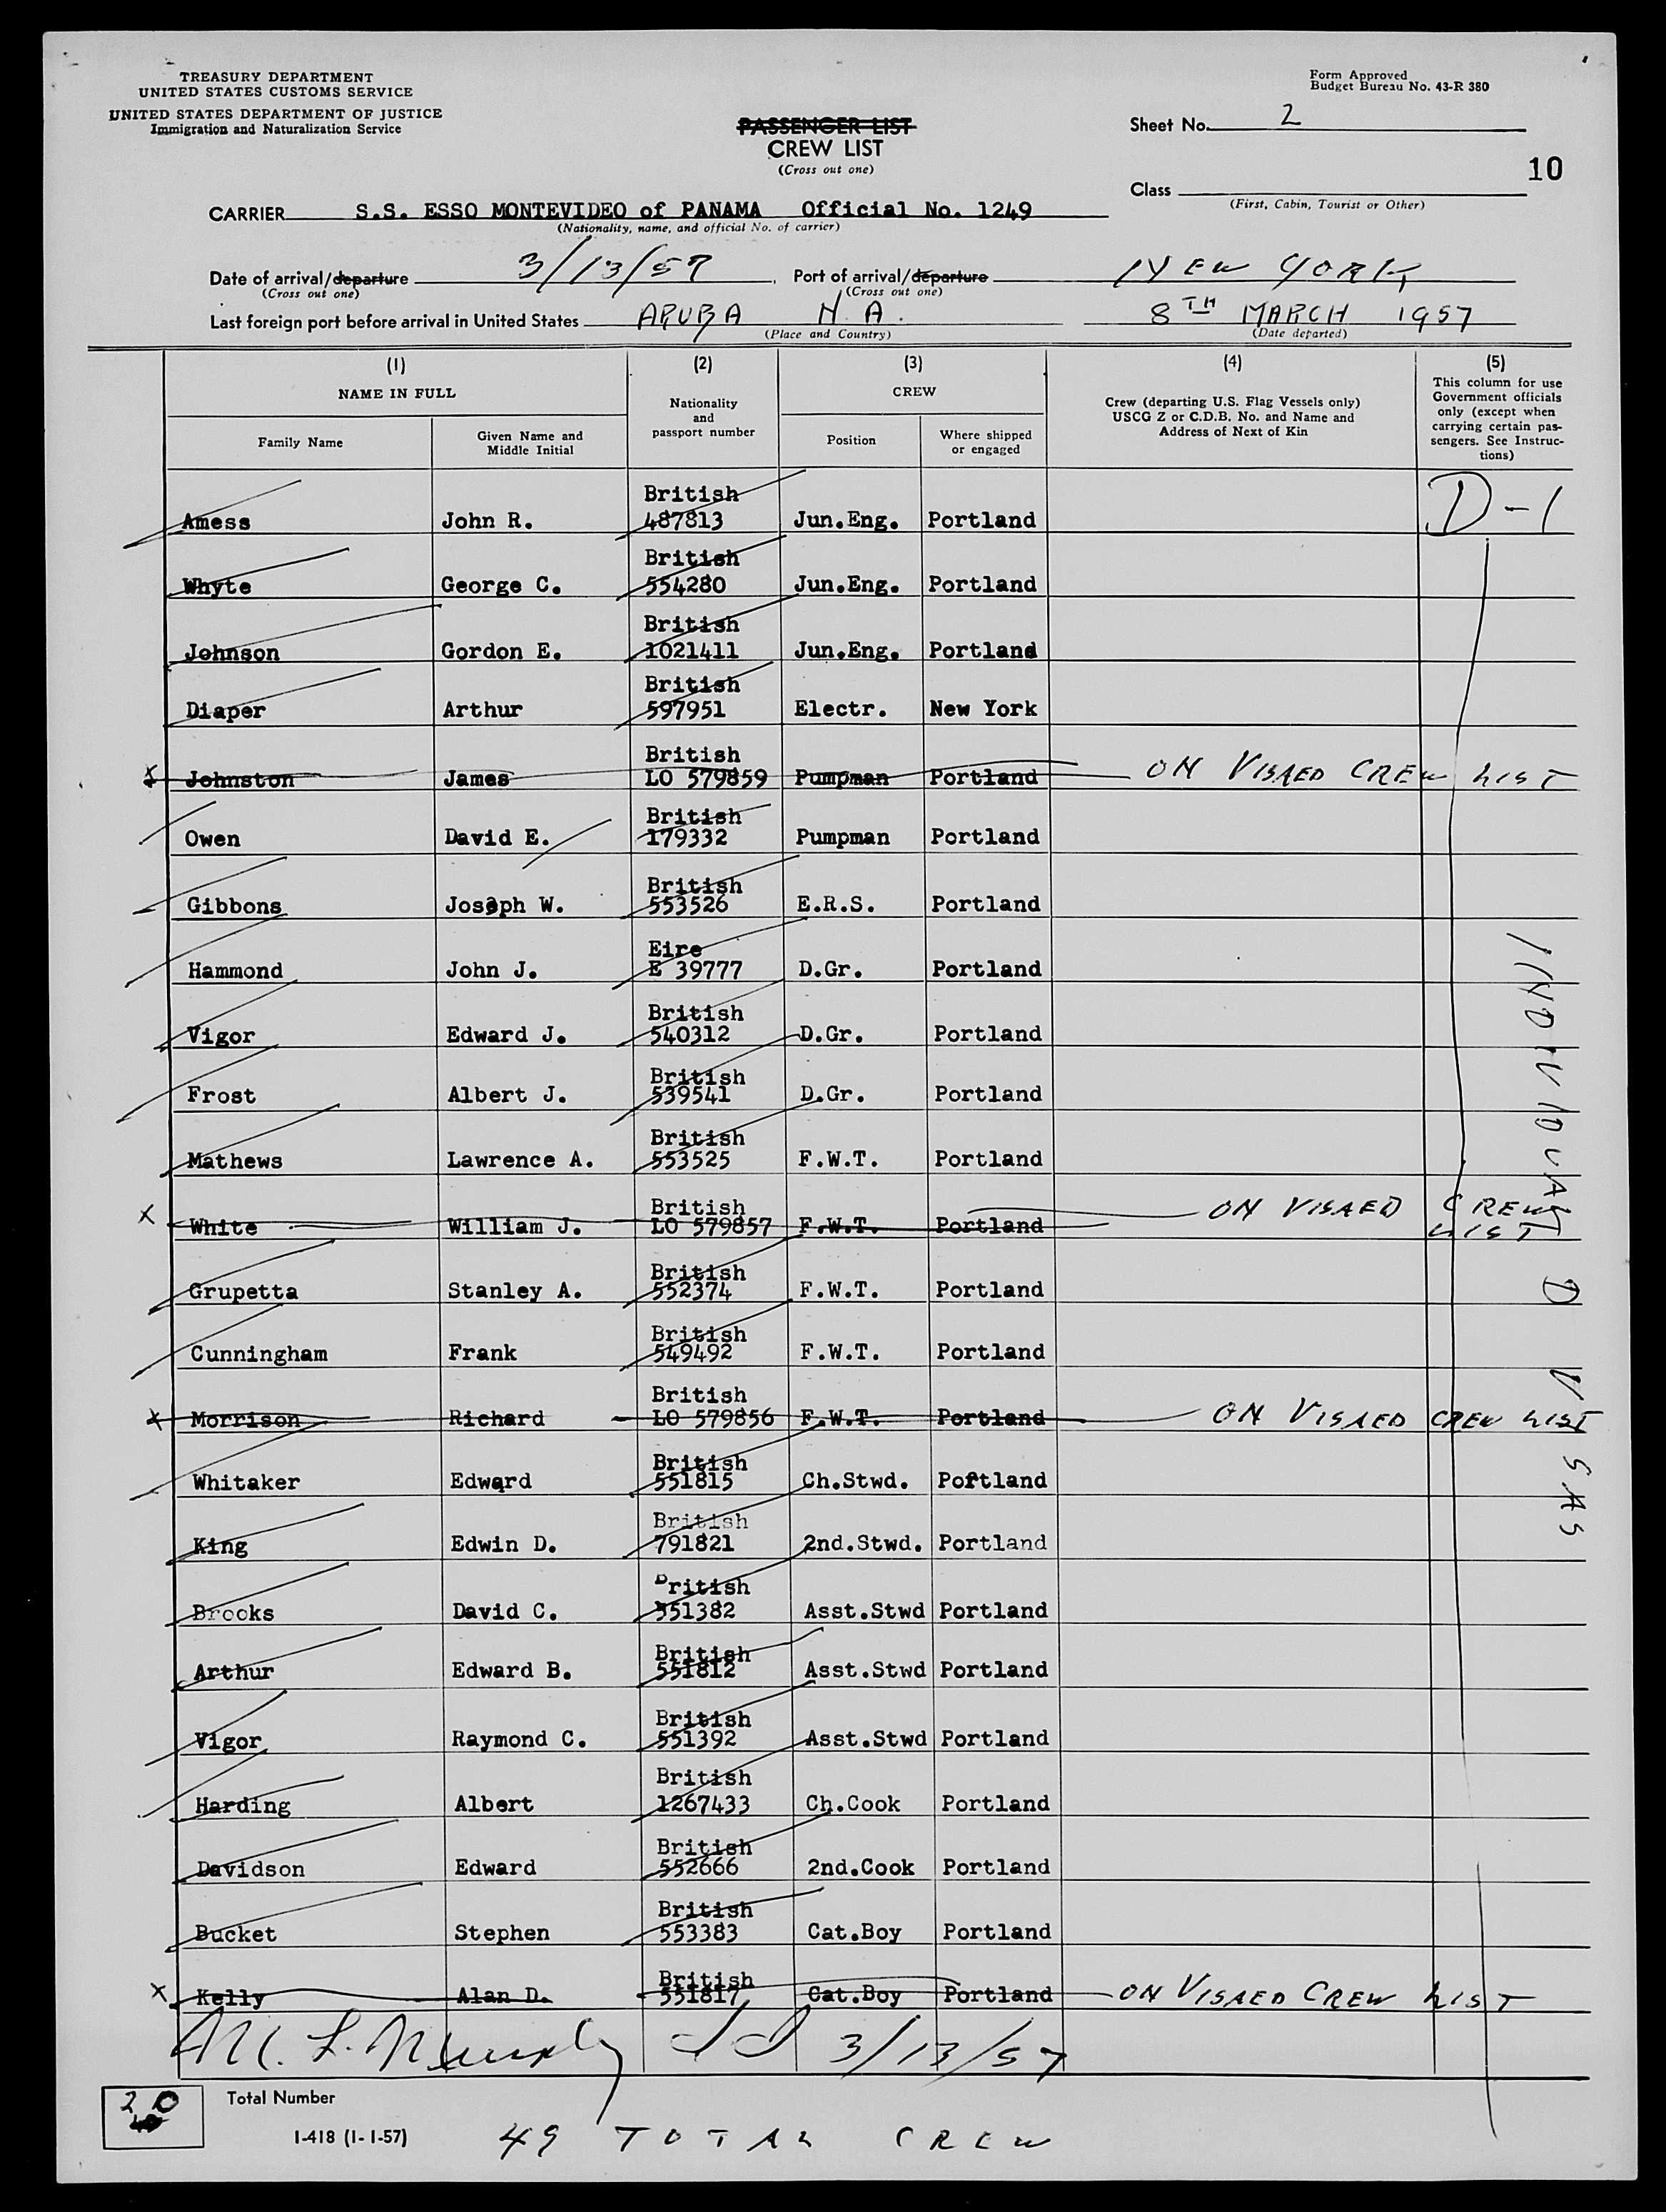 TREASURY DEPARTMENT
UNITED STATES CUSTOMS SERVICE
UNITED STATES DEPARTMENT OF JUSTICE
Immigration and Naturalization Service
Form Approved
Budget Bureau No. 43-R 380
PASSENGER LIST
CREW LIST
(Cross out one)
Sheet No. 2
10
Class
(First, Cabin, Tourist or Other)
CARRIER S.S. ESSO MONTEVIDEO of PANAMA Official No. 1249
(Nationality, name, and official No. of carrier)
Date of arrival/departure 3/13/57, Port of arrival/departure NEW YORK
(Cross out one) (Cross out one)
Last foreign port before arrival in United States ARUBA N.A. 8TH MARCH 1957
(Place and Country) (Date departed)
(1) (2) (3) (4) (5)
NAME IN FULL
Family Name
Given Name and
Middle Initial
Nationality
and
passport number
CREW
Position
Where shipped
or engaged
Crew (departing U.S. Flag Vessels only)
USCG Z or C.D.B. No. and Name and
Address of Next of Kin
This column for use
Government officials
only (except when
carrying certain pas-
sengers. See Instruc-
tions)
British
Amess John R. 487813 Jun.Eng. Portland D-1
British
Whyte George C. 554280 Jun.Eng. Portland
British
Johnson Gordon E. 1021411 Jun.Eng. Portland
British
Diaper Arthur 597951 Electr. New York
British
x Johnston James LO 579859 Pumpman Portland ON VISAED CREW LIST
British
Owen David E. 179332 Pumpman Portland
British
Gibbons Joseph W. 553526 E.R.S. Portland
Eire
Hammond John J. E 39777 D.Gr. Portland
British
Vigor Edward J. 540312 D.Gr. Portland
British
Frost Albert J. 539541 D.Gr. Portland
British
Mathews Lawrence A. 553525 F.W.T. Portland
British
x White William J. LO 579857 F.W.T. Portland ON VISAED CREW
LIST
British
Grupetta Stanley A. 552374 F.W.T. Portland
British
Cunningham Frank 549492 F.W.T. Portland
British
x Morrison Richard LO 579856 F.W.T. Portland ON VISAED CREW LIST
British
Whitaker Edward 551815 Ch.Stwd. Portland
British
King Edwin D. 791821 2nd.Stwd. Portland
British
Brooks David C. 551382 Asst.Stwd Portland
British
Arthur Edward B. 551812 Asst.Stwd Portland
British
Vigor Raymond C. 551392 Asst.Stwd Portland
British
Harding Albert 1267433 Ch.Cook Portland
British
Davidson Edward 552666 2nd.Cook Portland
British
Bucket Stephen 553383 Cat.Boy Portland
British
x Kelly Alan D. 551817 Cat.Boy Portland ON VISAED CREW LIST
INDIVIDUAL D VISAS
M. L. Murphy 3/13/57
20
Total Number
I-418 (1-1-57)
49 TOTAL CREW